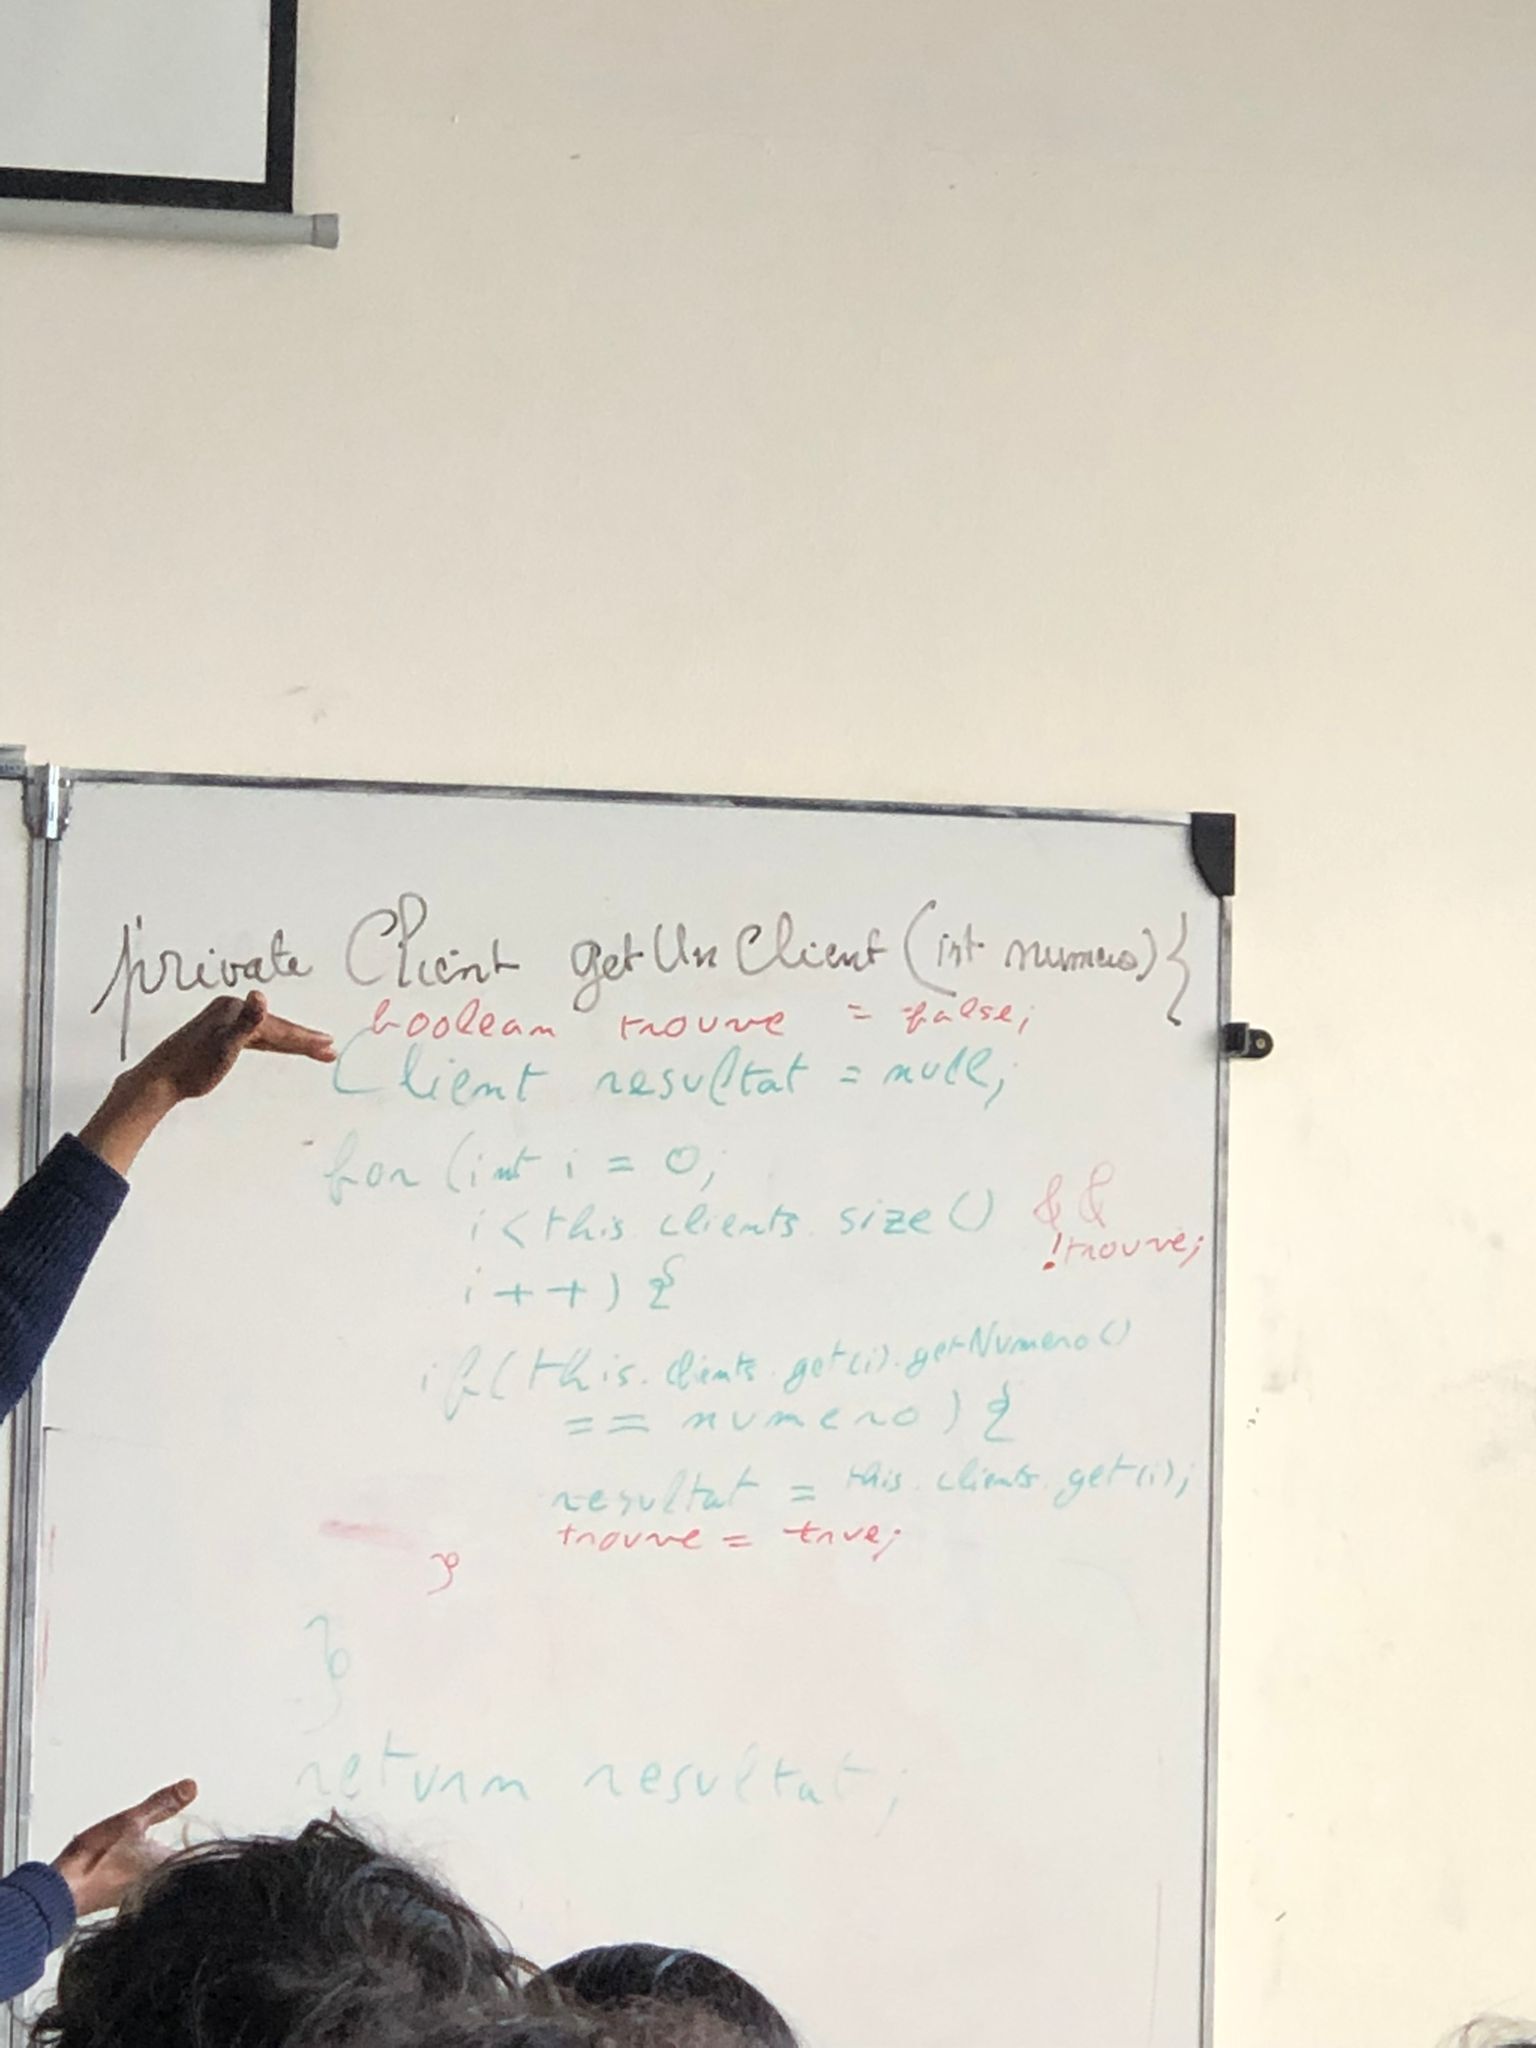 private Client getUnClient(int numero){
boolean trouve = false;
Client resultat = null;
for (int i = 0;
i < this.clients.size() &&
!trouve;
i++) {
if (this.clients.get(i).getNumero()
== numero) {
resultat = this.clients.get(i);
trouve = true;
}
}
return resultat;